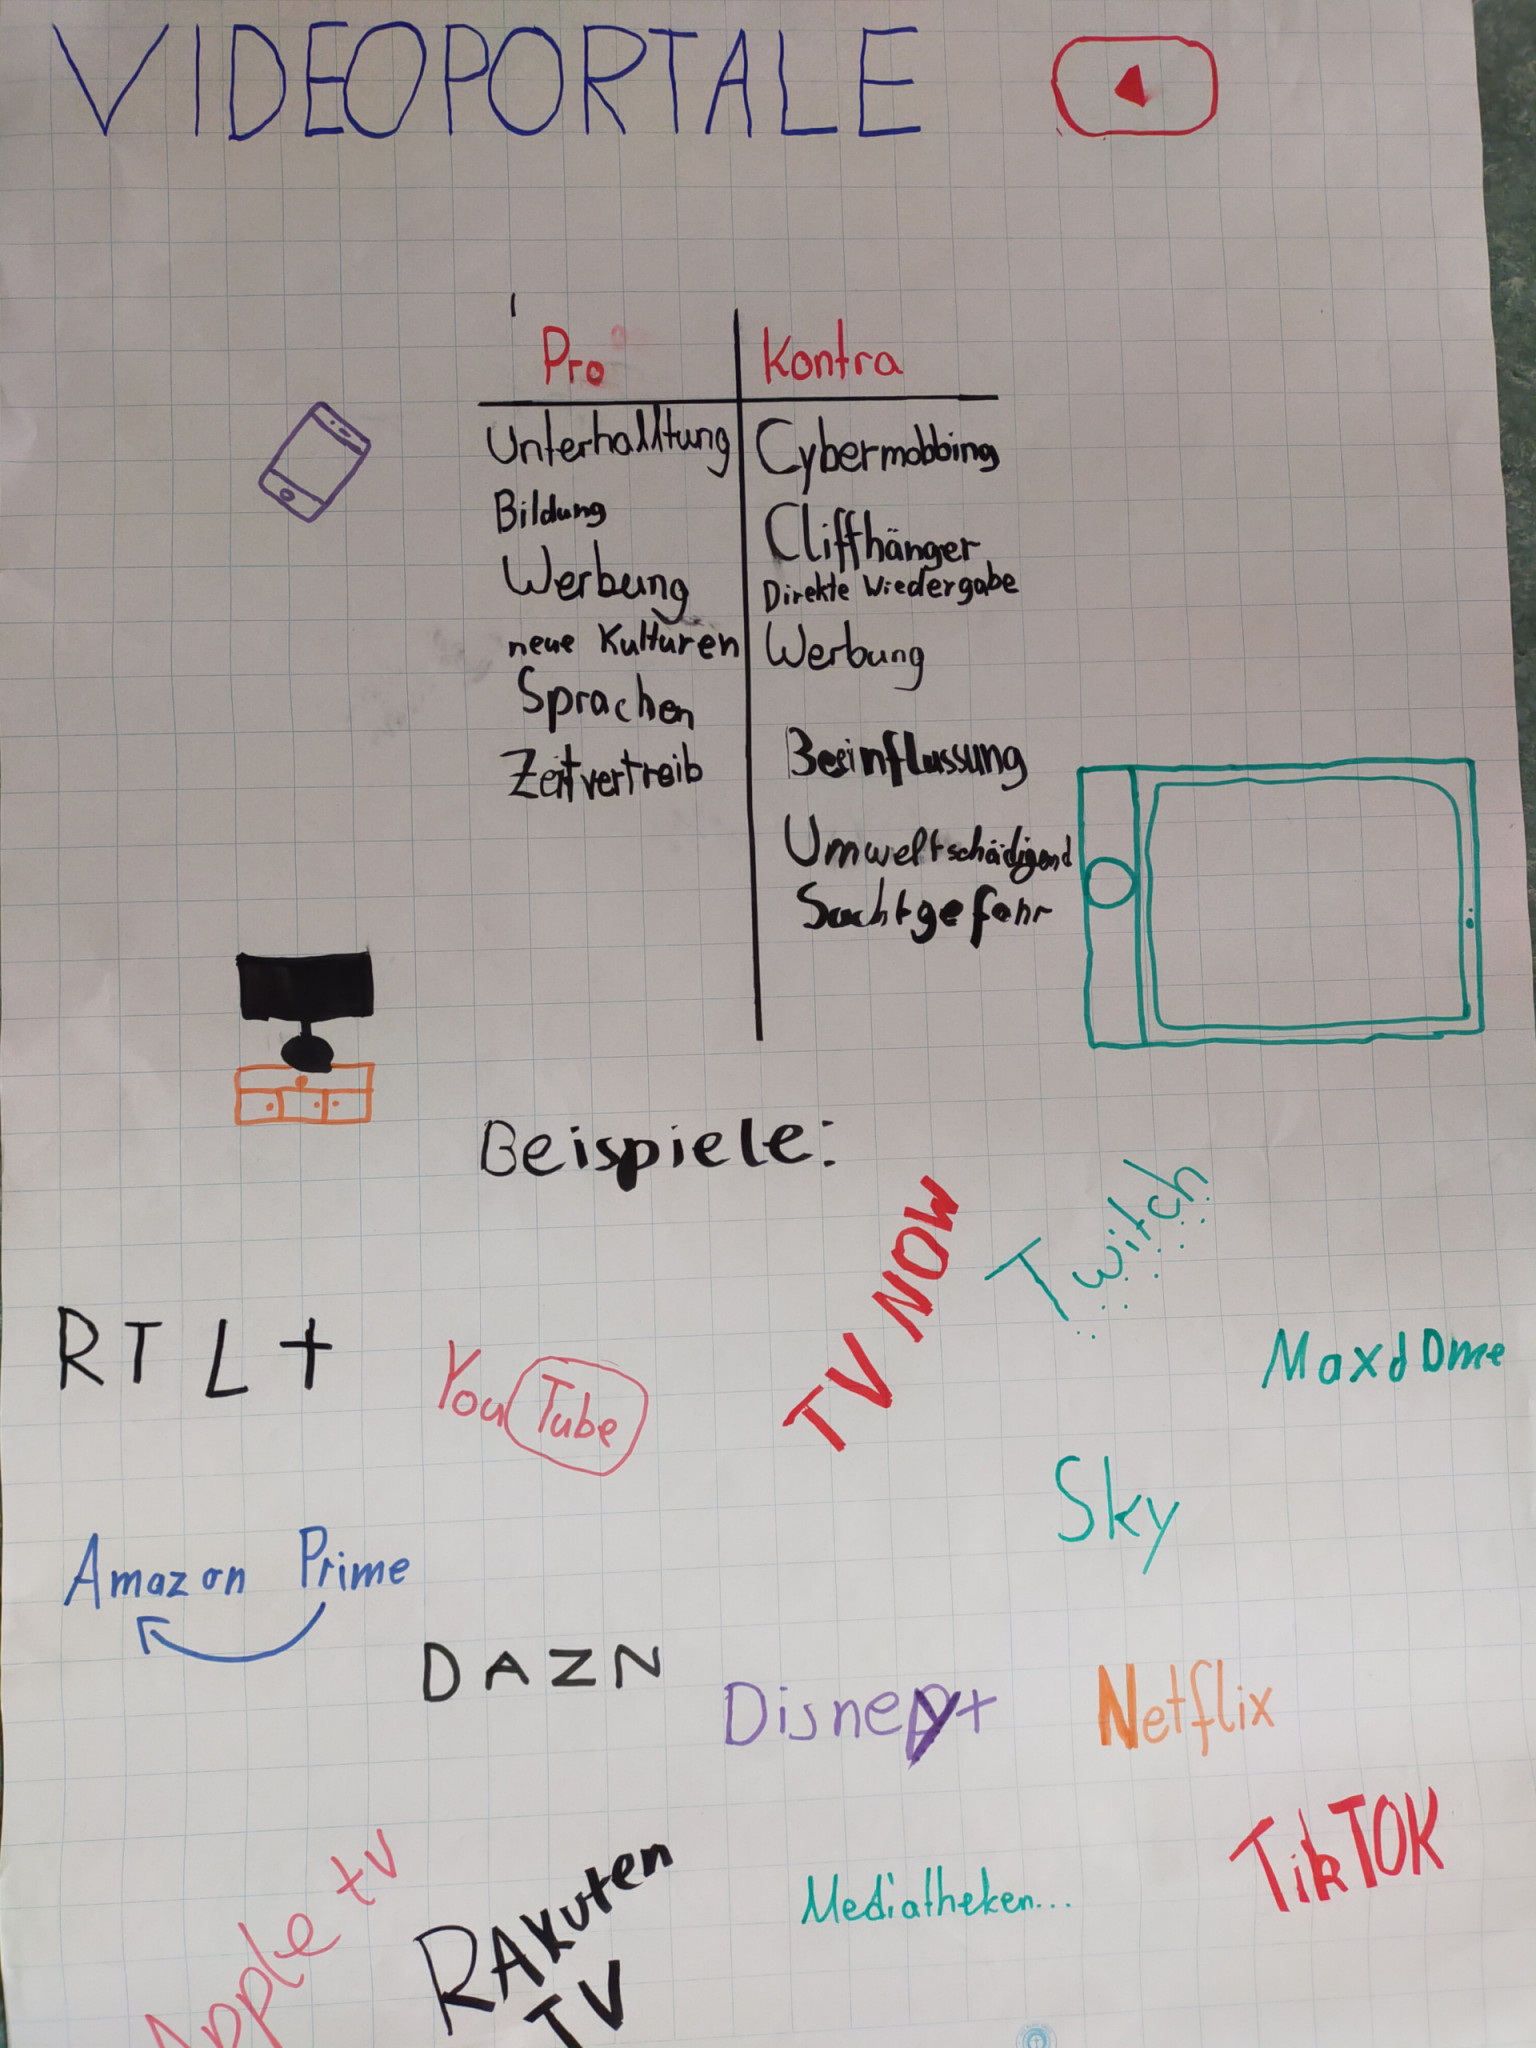 VIDEOPORTALE
Pro
Unterhalltung
Bildung
Werbung
neue Kulturen
Sprachen
Zeitvertreib
Kontra
Cybermobbing
Cliffhänger
Direkte Wiedergabe
Werbung
Beeinflussung
Umweltschädigend
Suchtgefahr
Beispiele:
RTL+
YouTube
TV NOW
Twitch
MaxdDme
Sky
Amazon Prime
DAZN
Disney+
Netflix
Apple tv
RAkuten
TV
Mediatheken...
TikTOK